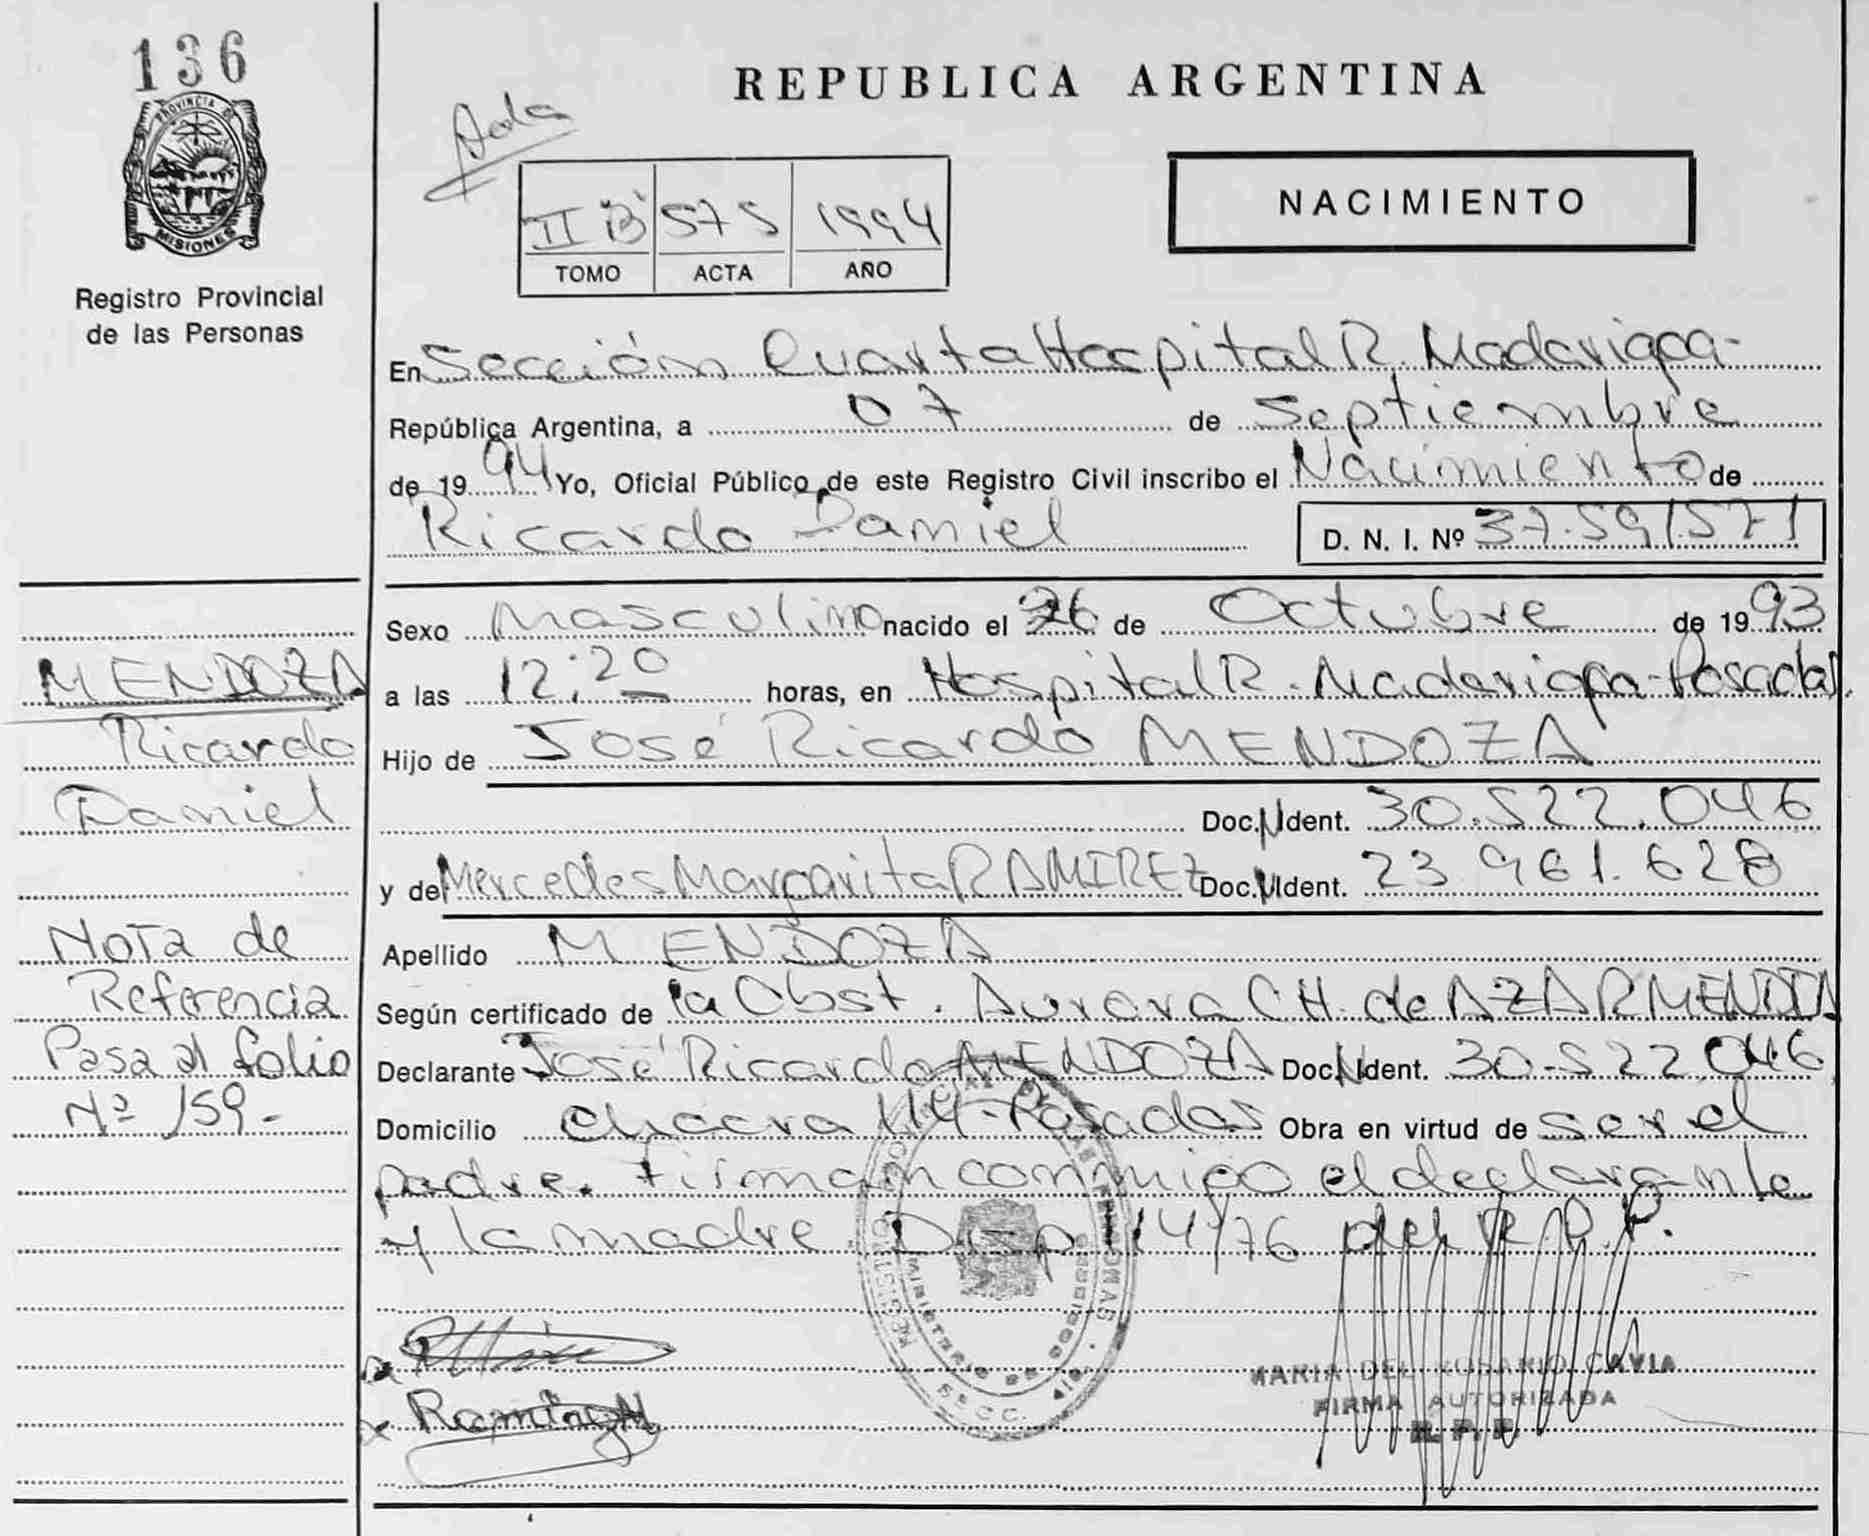 136
PROVINCIA DE
MISIONES
Registro Provincial
de las Personas
REPUBLICA ARGENTINA
NACIMIENTO
II B 575 1994
TOMO ACTA AÑO
En Sección Cuarta Hospital R. Madariaga-
República Argentina, a 07 de Septiembre
de 1994 Yo, Oficial Público de este Registro Civil inscribo el Nacimiento de
Ricardo Daniel D. N. I. Nº 37.591571
Sexo Masculino nacido el 26 de Octubre de 1993
a las 12:20 horas, en Hospital R. Madariaga-Posadas.
Hijo de José Ricardo MENDOZA
Doc. N Ident. 30.522.046
y de Mercedes Margarita RAMIREZ Doc. N Ident. 23.961.628
Apellido MENDOZA
Según certificado de la Obst. Aurora CH. de AZARMENDIA
Declarante José Ricardo MENDOZA Doc. N Ident. 30.522.046
Domicilio chacra 114-Posadas Obra en virtud de ser el
padre. Firman conmigo el declarante
y la madre. Disp 14/76 del R.P.P.
MENDOZA
Ricardo
Daniel
Nota de
Referencia
Pasa al folio
Nº 159.-
Ramirez M
MINISTERIO DE GOBIERNO
MARIA DEL ROSARIO CAVIA
FIRMA AUTORIZADA
R. P. P.